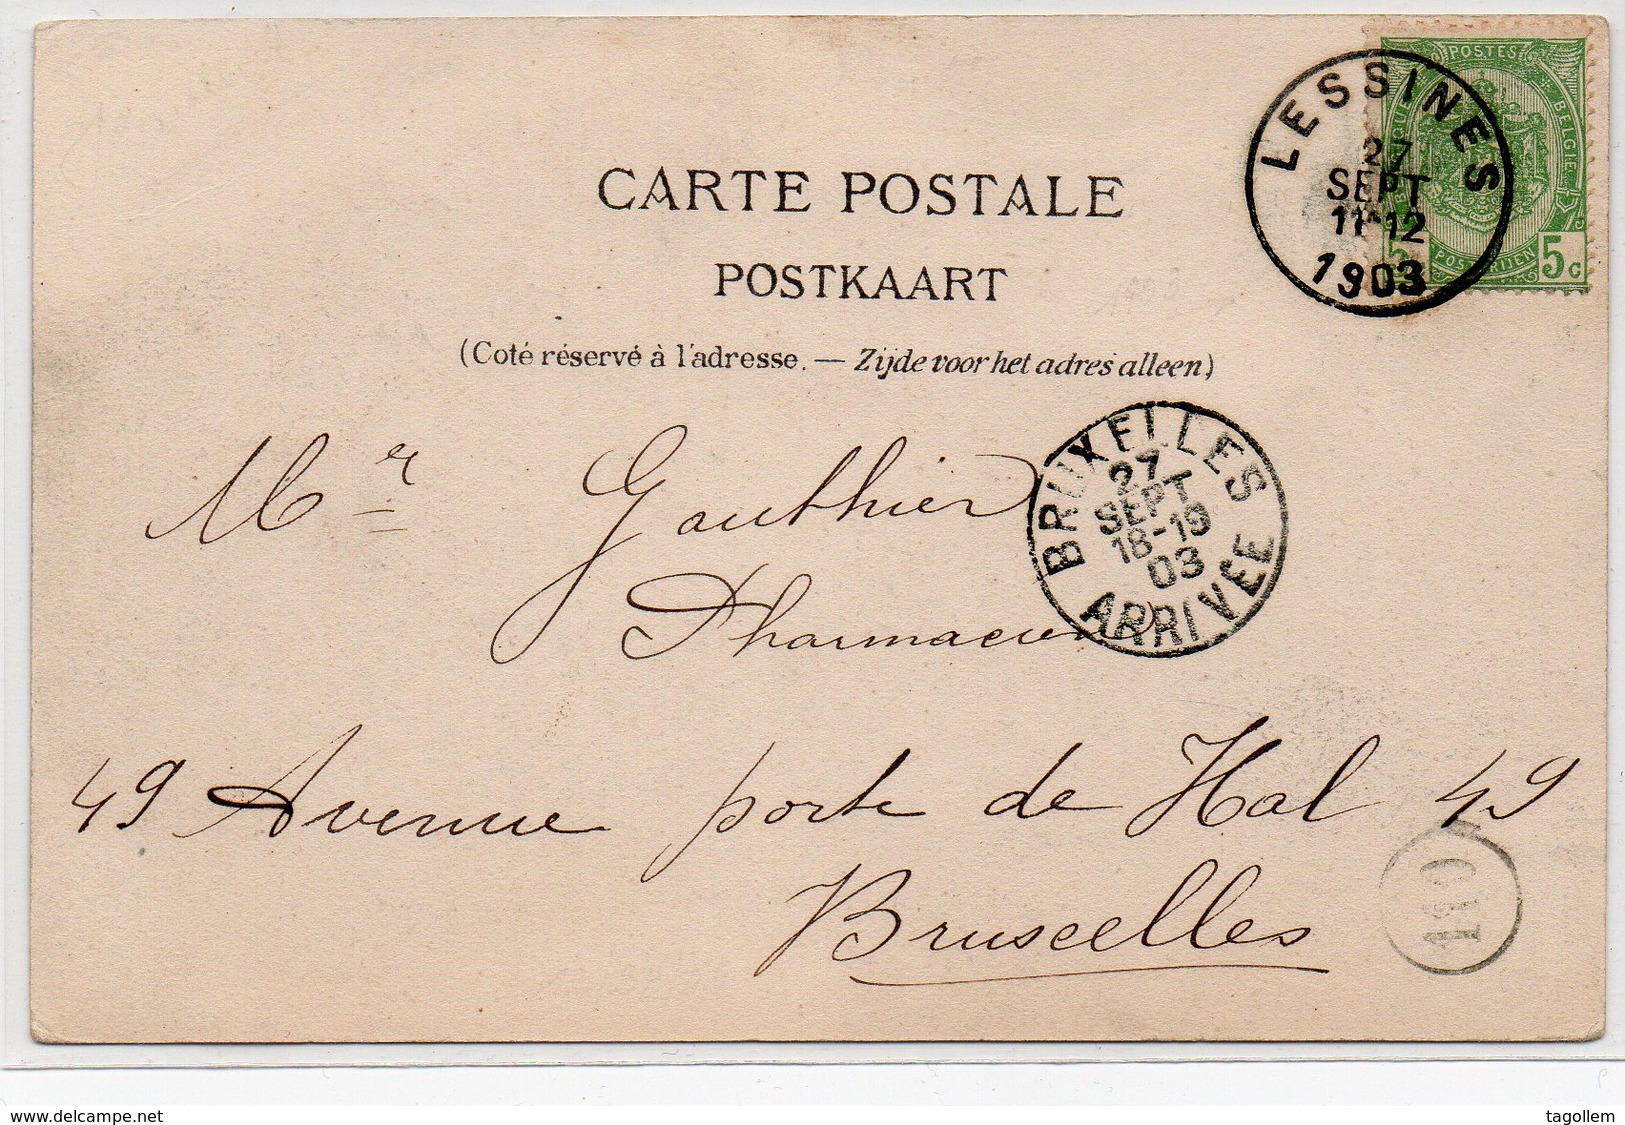 POSTES
LESSINES
27
SEPT
11-12
1903
BELGIE
5c
CARTE POSTALE
POSTKAART
(Coté réservé à l'adresse. — Zijde voor het adres alleen)
BRUXELLES
27
SEPT
18-19
03
ARRIVEE
Mr Gauthier
Pharmacien
49 Avenue porte de Hal 49
Bruxelles
110
www.delcampe.net
tagollem